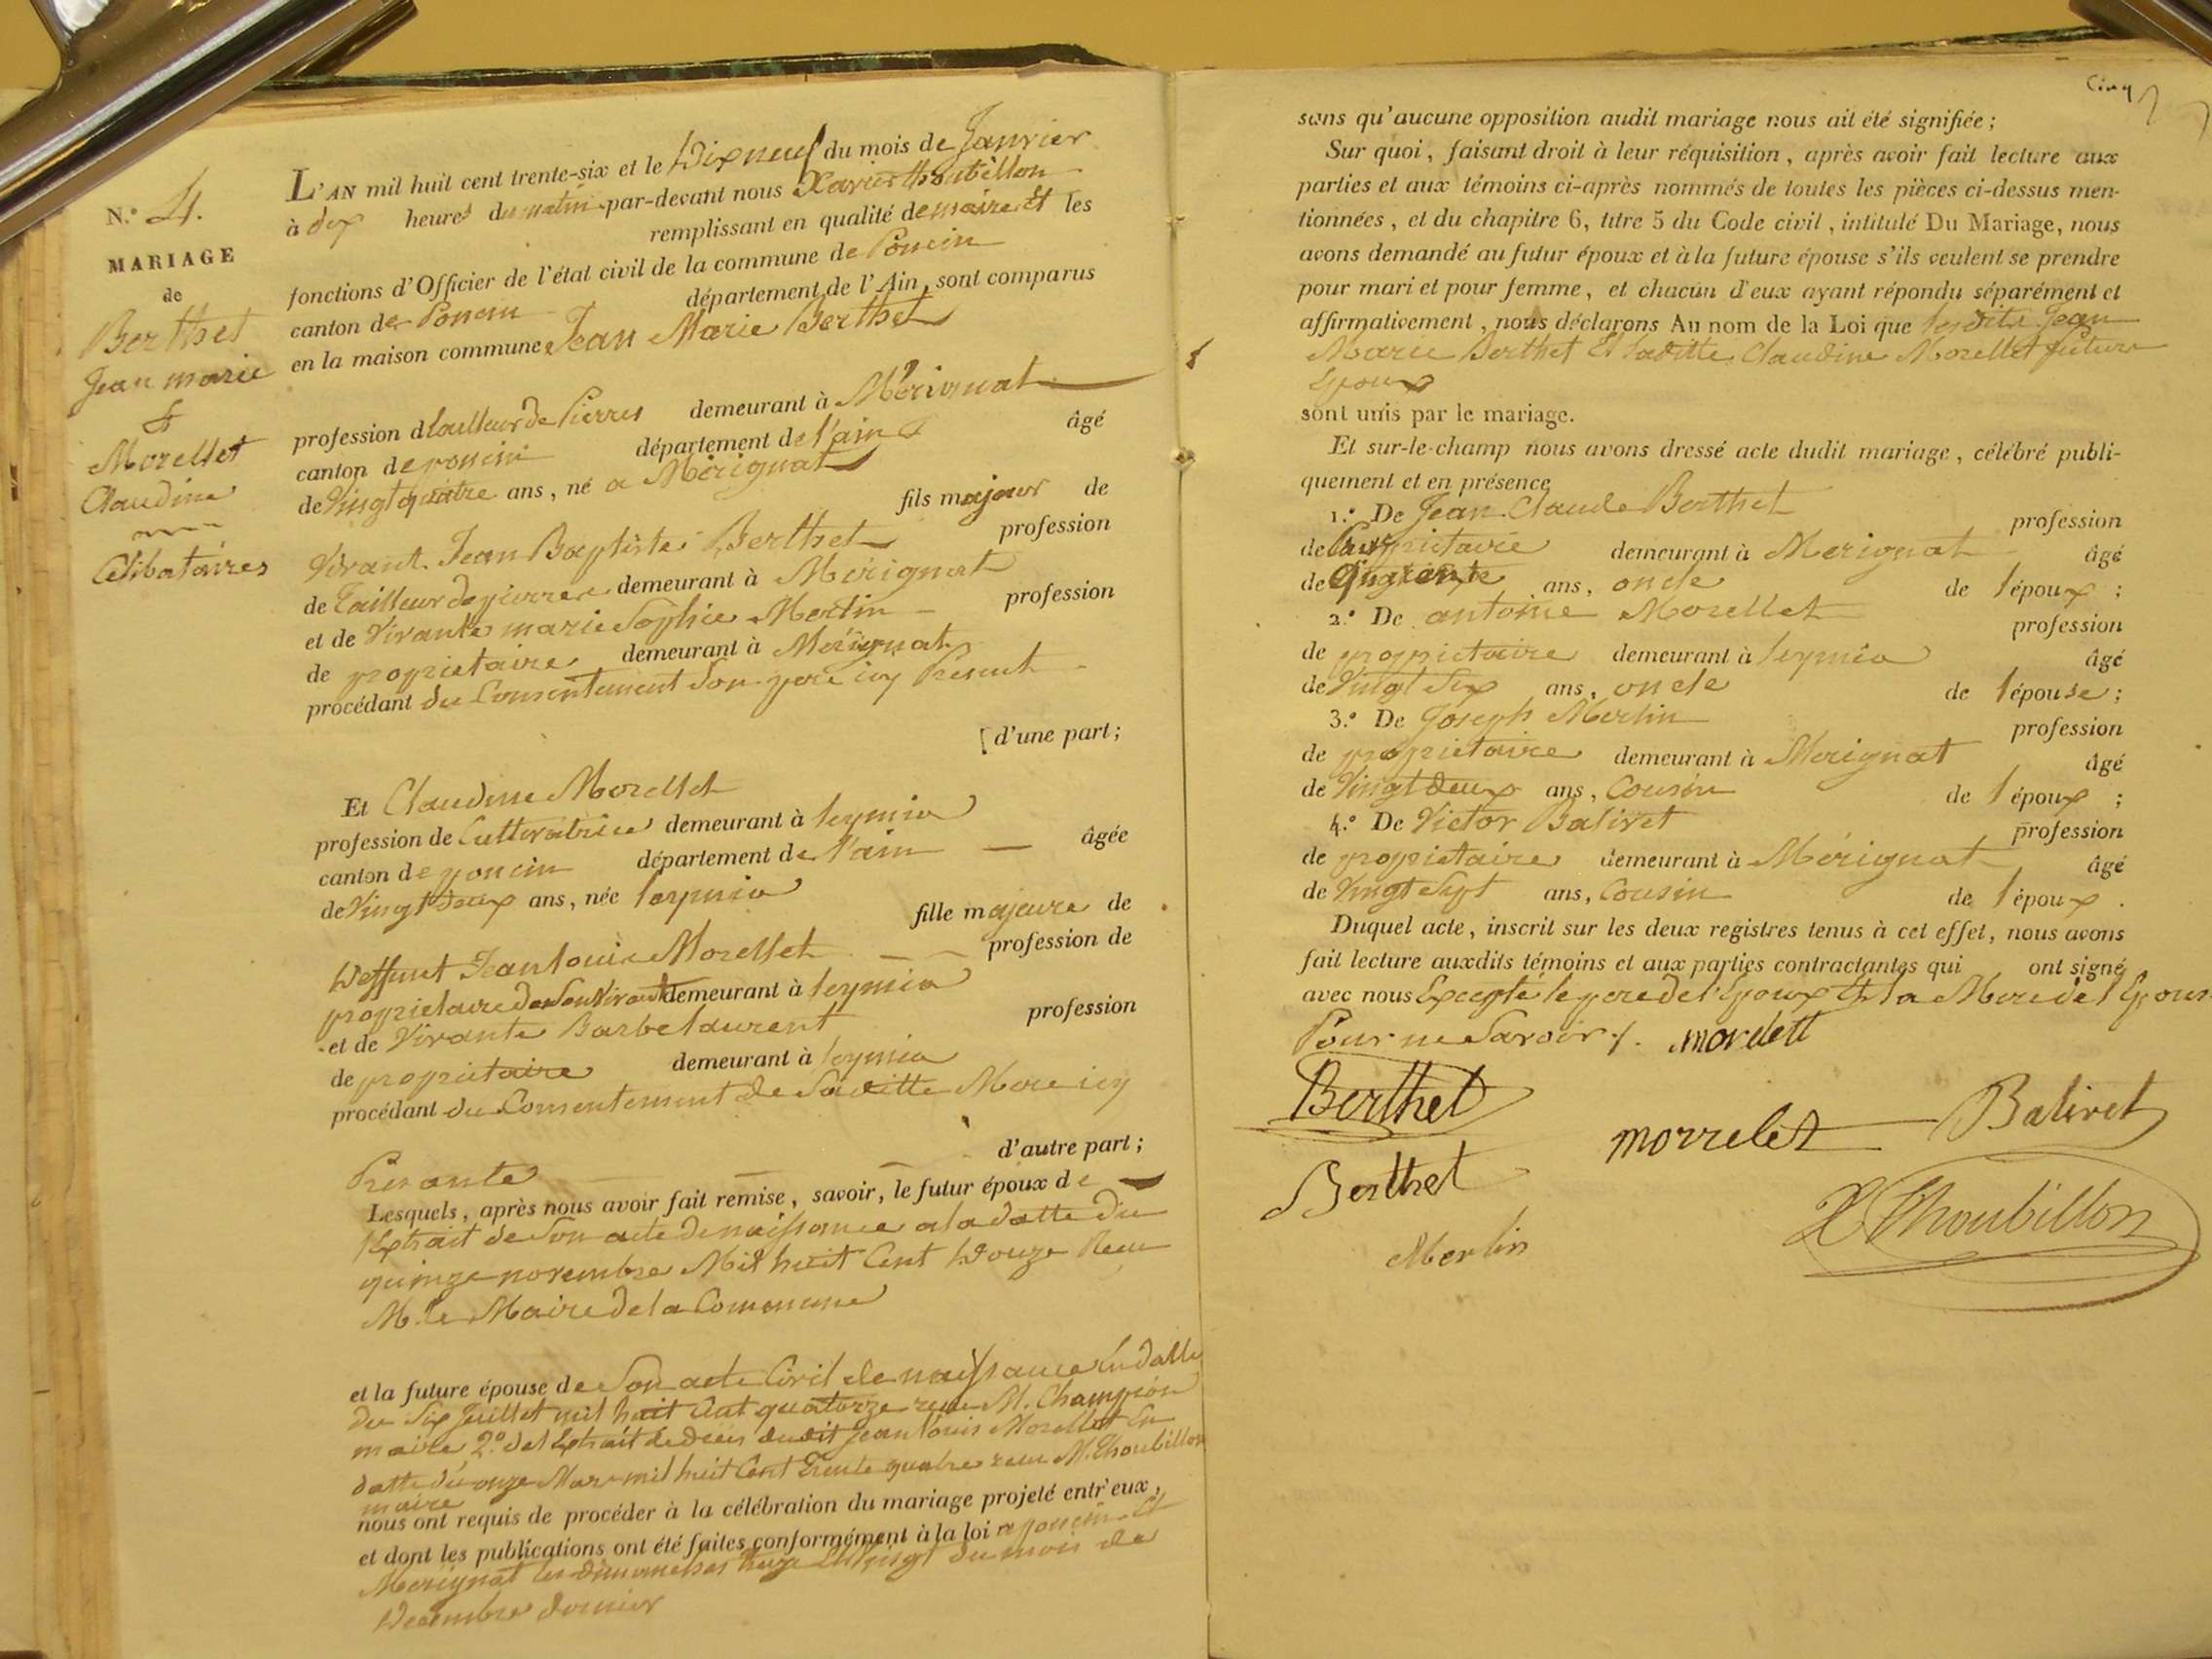 N.° 4.
MARIAGE
de
Berthet
Jean marie
&
Morellet
Claudine
Célibataires
L'AN mil huit cent trente-six et le Dixneuf du mois de Janvier
à dix heures du matin par-devant nous Xavier Thoubillon
remplissant en qualité de maire et les
fonctions d'Officier de l'état civil de la commune de Poncin
canton de Poncin département de l'Ain, sont comparus
en la maison commune Jean Marie Berthet
profession de tailleur de Pierres demeurant à Mérignat
canton de poncin département de l'ain âgé
de Vingt quatre ans, né a Mérignat
fils majeur de
Vivant Jean Baptiste Berthet profession
de Tailleur de pierres demeurant à Mérignat
et de Vivante marie Sophie Merlin profession
de proprietaire demeurant à Mérignat
procédant du Consentement Son pere icy Present
d'une part;
Et Claudine Morellet
profession de Cultivatrice demeurant à leymia
canton de poncin département de l'ain âgée
de Vingt deux ans, née leymia
fille majeure de
Deffunt Jean louis Morellet profession de
proprietaire de Son Vivant demeurant à leymia
et de Vivante Barbe laurent profession
de proprietaire demeurant à leymia
procédant du Consentement de Saditte Mere icy
Presente
d'autre part;
Lesquels, après nous avoir fait remise, savoir, le futur époux de
l'Extrait de Son acte de naissance a la datte du
quinze novembre Mil huit Cent Douze Reçu
M. le Maire de la Commune
et la future épouse de Son acte Civil de naissance En datte
du Six Juillet mil huit Cent quatorze reçu M. Champion
maire, 2.° de l'Extrait de décès dudit Jean louis Morellet En
datte du onze Mars mil huit Cent Trente quatre reçu M. Thoubillon
maire
nous ont requis de procéder à la célébration du mariage projeté entr'eux,
et dont les publications ont été faites conformément à la loi a poncin et
Merignat les dimanches treize et Vingt du mois de
Decembre dernier
Cinq
sans qu'aucune opposition audit mariage nous ait été signifiée;
Sur quoi, faisant droit à leur réquisition, après avoir fait lecture aux
parties et aux témoins ci-après nommés de toutes les pièces ci-dessus men-
tionnées, et du chapitre 6, titre 5 du Code civil, intitulé Du Mariage, nous
avons demandé au futur époux et à la future épouse s'ils veulent se prendre
pour mari et pour femme, et chacun d'eux ayant répondu séparément et
affirmativement, nous déclarons Au nom de la Loi que lesdits Jean
Marie Berthet Et laditte Claudine Morellet future
Epoux
sont unis par le mariage.
Et sur-le-champ nous avons dressé acte dudit mariage, célébré publi-
quement et en présence
1.° De Jean Claude Berthet profession
de Proprietaire demeurant à Merignat âgé
de Quarente ans, oncle de l'époux;
2.° De antoine Morellet profession
de proprietaire demeurant à leymia âgé
de Vingt Six ans, oncle de l'épouse;
3.° De Joseph Merlin profession
de proprietaire demeurant à Merignat âgé
de Vingt deux ans, Cousin de l'époux;
4.° De Victor Balivet profession
de proprietaire demeurant à Mérignat âgé
de Vingt Sept ans, Cousin de l'époux.
Duquel acte, inscrit sur les deux registres tenus à cet effet, nous avons
fait lecture auxdits témoins et aux parties contractantes qui ont signé
avec nous Excepté le pere de l'Epoux et la Mere de l'Epouse
Pour ne Savoir /. mordett
Berthet
morrelet Balivet
Berthet
X Thoubillon
Merlin